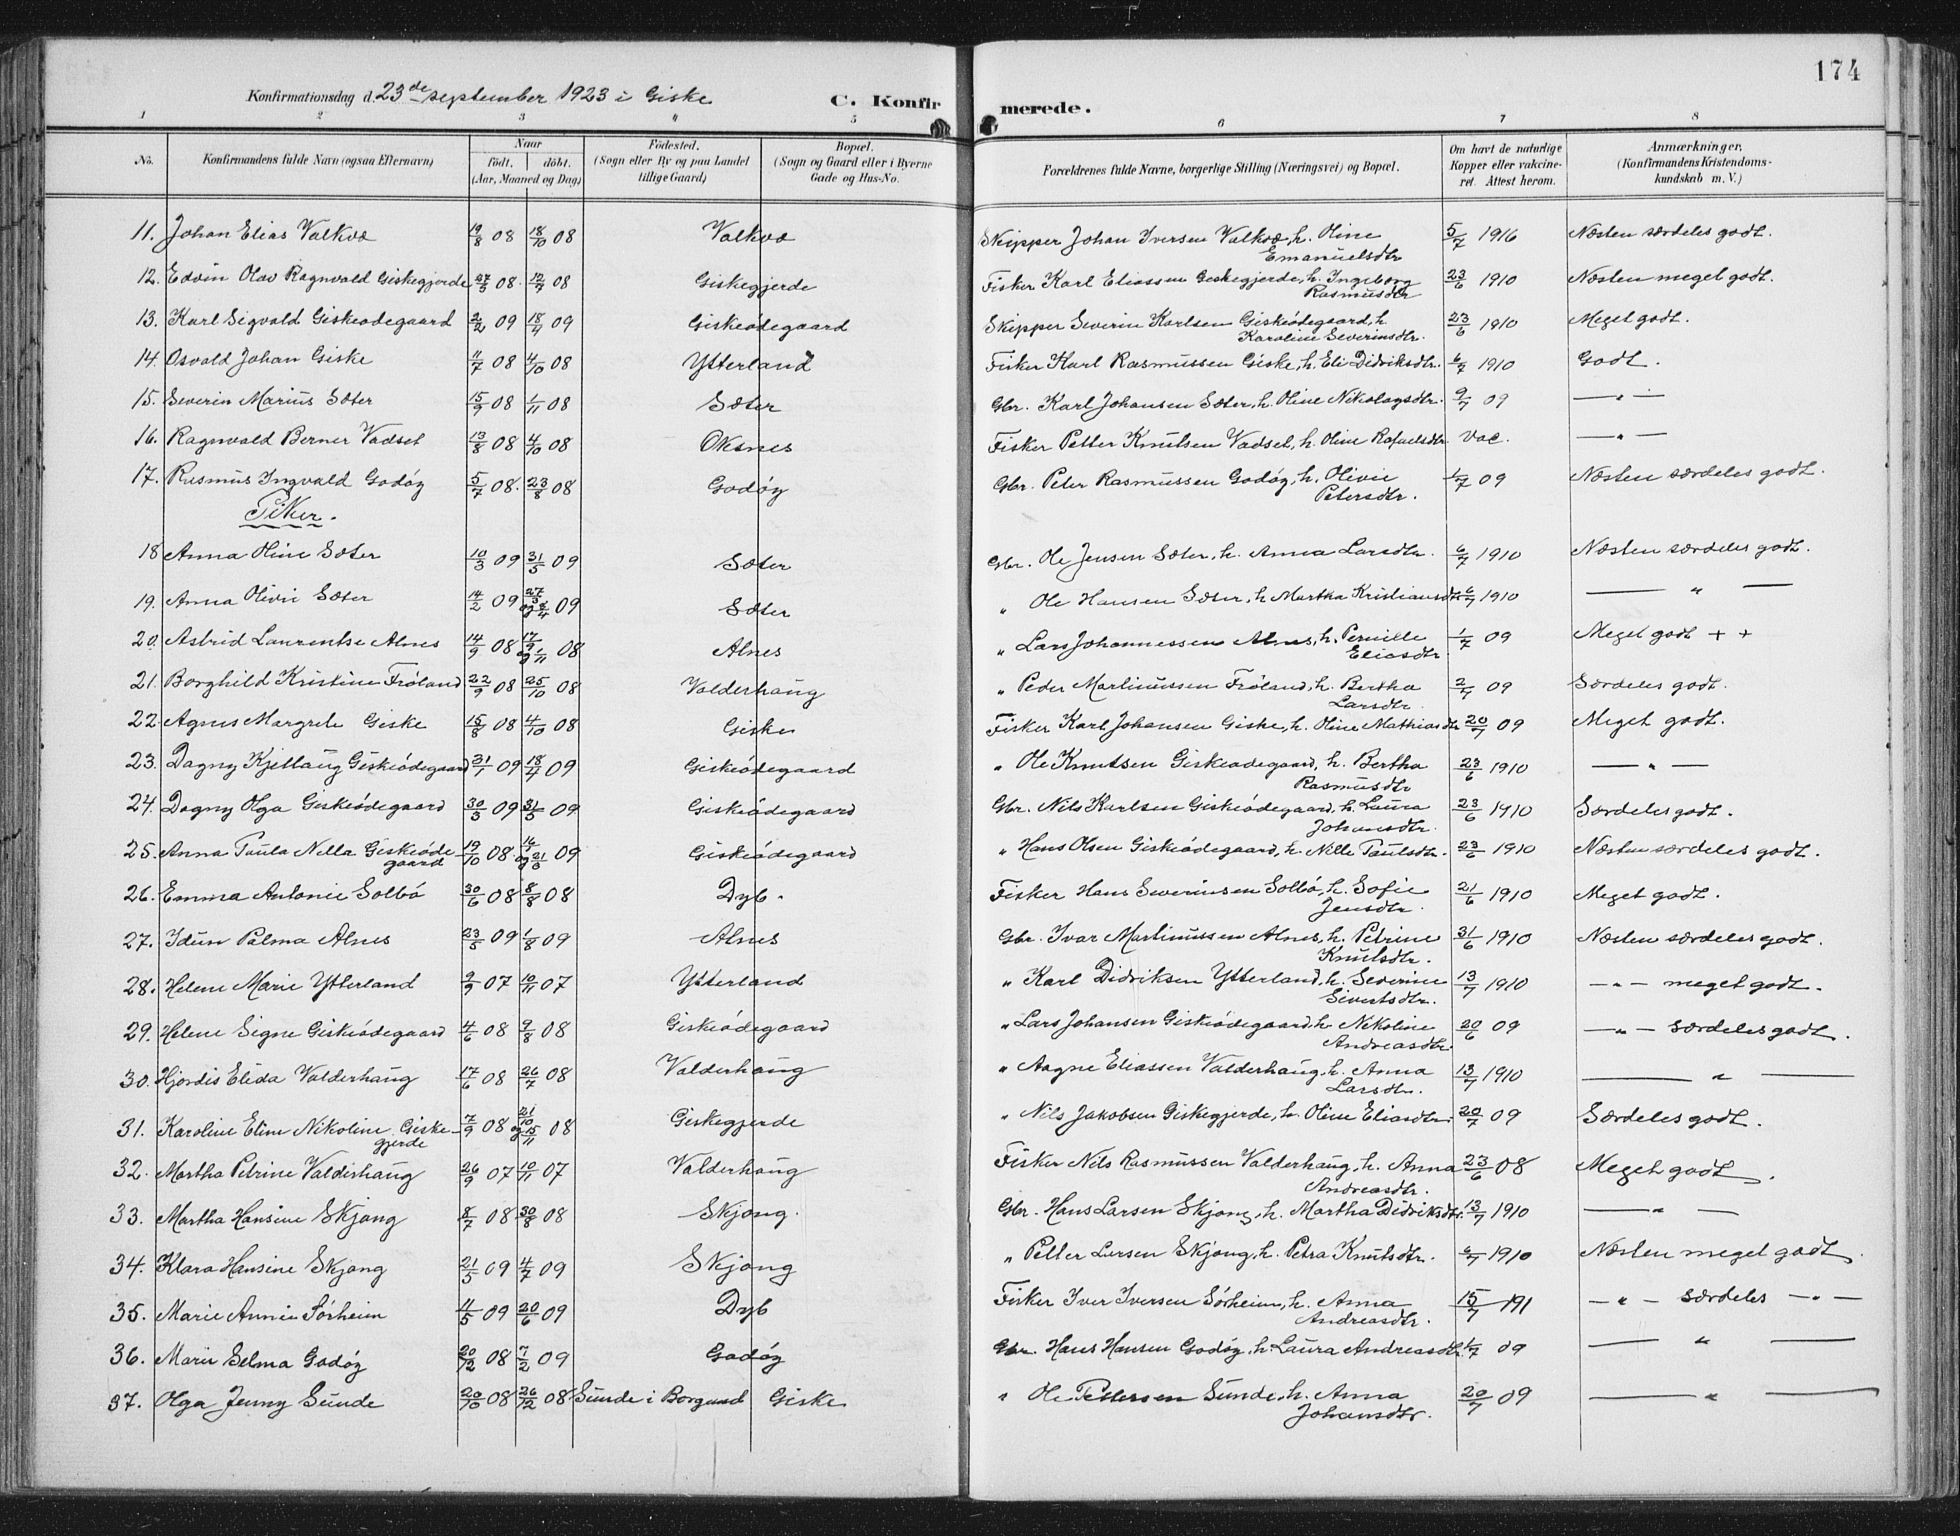 174
Konfirmationsdag d. 23de september 1923 i Giske C. Konfirmerede.
1 2 3 4 5 6 7 8
No. Konfirmandens fulde Navn (ogsaa Efternavn) Naar födt. döbt. (Aar, Maaned og Dag) Födested. (Sogn eller By og paa Landet tillige Gaard) Bopæl. (Sogn og Gaard eller i Byerne Gade og Hus-No. Forældrenes fulde Navne, borgerlige Stilling (Næringsvei) og Bopæl. Om havt de naturlige Kopper eller vakcineret. Attest herom. Anmærkninger. (Konfirmandens Kristendomskundskab m. V.)
11. Johan Elias Valkvæ 19/8 08 18/10 08 Valkvæ Skipper Johan Iversen Valkvæ, h. Oline Emanuelsdtr 5/7 1916 Næsten særdeles godt.
12. Edvin Olav Ragnvald Giskegjerde 27/5 08. 12/7 08 Giskegjerde Fisker Karl Eliassen Giskegjerde, h. Ingeborg Rasmusdtr 23/6 1910 Næsten meget godt.
13. Karl Sigvald Giskeødegaard 2/2 09 18/4 09 Giskeødegaard Skipper Severin Karlsen Giskeødegaard, h Karoline Severinsdtr. 23/6 1910 Meget godt.
14. Osvald Johan Giske 11/7 08 4/10 08 Ytterland Fisker Karl Rasmussen Giske, h. Eli Didriksdtr. 6/7 1910 Godt.
15. Severin Marius Sæter 15/9 08 1/11 08 Sæter Gbr. Karl Johansen Sæter, h. Oline Nikolaysdtr. 9/7 09 — " —
16. Ragnvald Berner Vadset 13/8 08 4/10 08 Oksnes Fisker Petter Knutsen Vadset, h. Oline Rafaelsdtr. Vac. — " —
17. Rasmus Ingvald Godøy 5/7 08. 23/8 08 Godøy Gbr. Peter Rasmussen Godøy, h. Olivie Petersdtr. 1/7 09 Næsten særdeles godt.
Piker.
18 Anna Oline Sæter 10/3 09 31/5 09 Sæter Gbr. Ole Jensen Sæter, h. Anna Larsdtr. 6/7 1910 Næsten særdeles godt.
19. Anna Olivie Sæter 14/2 09 27/3 og 8/4 09 Sæter " Ole Hansen Sæter, h Martha Kristiansdtr 6/7 1910 — " —
20. Astrid Laurentse Alnes 14/9 08 17/9 og 1/11 08 Alnes " Lars Johannessen Alnes, h. Pernille Eliasdtr. 1/7 09 Meget godt + +
21. Borghild Kristine Frøland 22/9 08 25/10 08 Valderhaug " Peder Martinussen Frøland, h. Bertha Larsdtr. 2/7 09 Særdeles godt.
22. Agnes Margrete Giske 15/8 08 4/10 08 Giske Fisker Karl Johansen Giske, h. Oline Mathiasdtr 20/7 09 Meget godt.
23. Dagny Kjellaug Giskeødegaard 31/1 09 18/4 09 Giskeødegaard " Ole Knutsen Giskeødegaard, h. Bertha Rasmusdtr 23/6 1910 — " —
24. Dagny Olga Giskeødegaard 30/3 09 31/5 09 Giskeødegaard Gbr. Nils Karlsen Giskeødegaard, h. Laura Johansdtr. 23/6 1910 Særdeles godt.
25. Anna Paula Nella Giskeødegaard 19/10 08 og 21/3 09 Giskeødegaard " Hans Olsen Giskeødegaard, h. Nille Paulsdtr. 23/6 1910 Næsten særdeles godt.
26. Emma Antonie Solbø 30/6 08 8/8 08 Dyb. Fisker Hans Severinsen Solbø, h. Sofie Jensdtr. 21/6 1910 Meget godt.
27. Idun Palma Alnes 23/5 09 1/8 09 Alnes Gbr. Ivar Martinussen Alnes, h. Petrine Knutsdtr. 31/6 1910 Næsten særdeles godt.
28. Helene Marie Ytterland 9/9 07 10/11 07 Ytterland " Karl Didriksen Ytterland, h. Severine Sivertsdtr. 13/7 1910 — " — meget godt.
29. Helene Signe Giskeødegaard 4/6 08 9/8 08 Giskeødegaard " Lars Johansen Giskeødegaard, h Nekoline Andreasdtr. 20/6 09 — " — særdeles godt.
30. Hjørdis Elida Valderhaug 17/6 08 26/7 08 Valderhaug " Aagne Eliassen Valderhaug, h. Anna Larsdtr. 13/7 1910 — " —
31. Karoline Eline Nikoline Giskegjerde 7/9 08 21/10 og 15/11 08 Giskegjerde " Nils Jakobsen Giskegjerde, h. Oline Eliasdtr. 20/7 09 Særdeles godt.
32. Martha Petrine Valderhaug 26/9 07 10/11 07 Valderhaug Fisker Nils Rasmussen Valderhaug, h. Anna Andreasdtr. 23/6 08 Meget godt.
33. Martha Hansine Skjong 8/7 08 30/8 08 Skjong. Gbr. Hans Larsen Skjong, h. Martha Didriksdtr. 13/7 1910 — " —
34. Klara Hansine Skjong 21/5 09 4/7 09 Skjong " Petter Larsen Skjong, h. Petra Knutsdtr. 6/7 1910 Næsten meget godt.
35. Marie Annie Sørheim 11/5 09 20/6 09 Dyb Fisker Iver Iversen Sørheim, h. Anna Andreasdtr. 15/7 191 — " — særdeles — " —
36. Marie Selma Godøy 20/12 08 7/2 09 Godøy Gbr. Hans Hansen Godøy, h Laura Andreasdtr. 1/7 09 — " —
37. Olga Jenny Sunde 20/10 08 26/12 08 Sunde i Borgund Giske " Ole Pettersen Sunde, h. Anna Johansdtr. 20/7 09 — " —